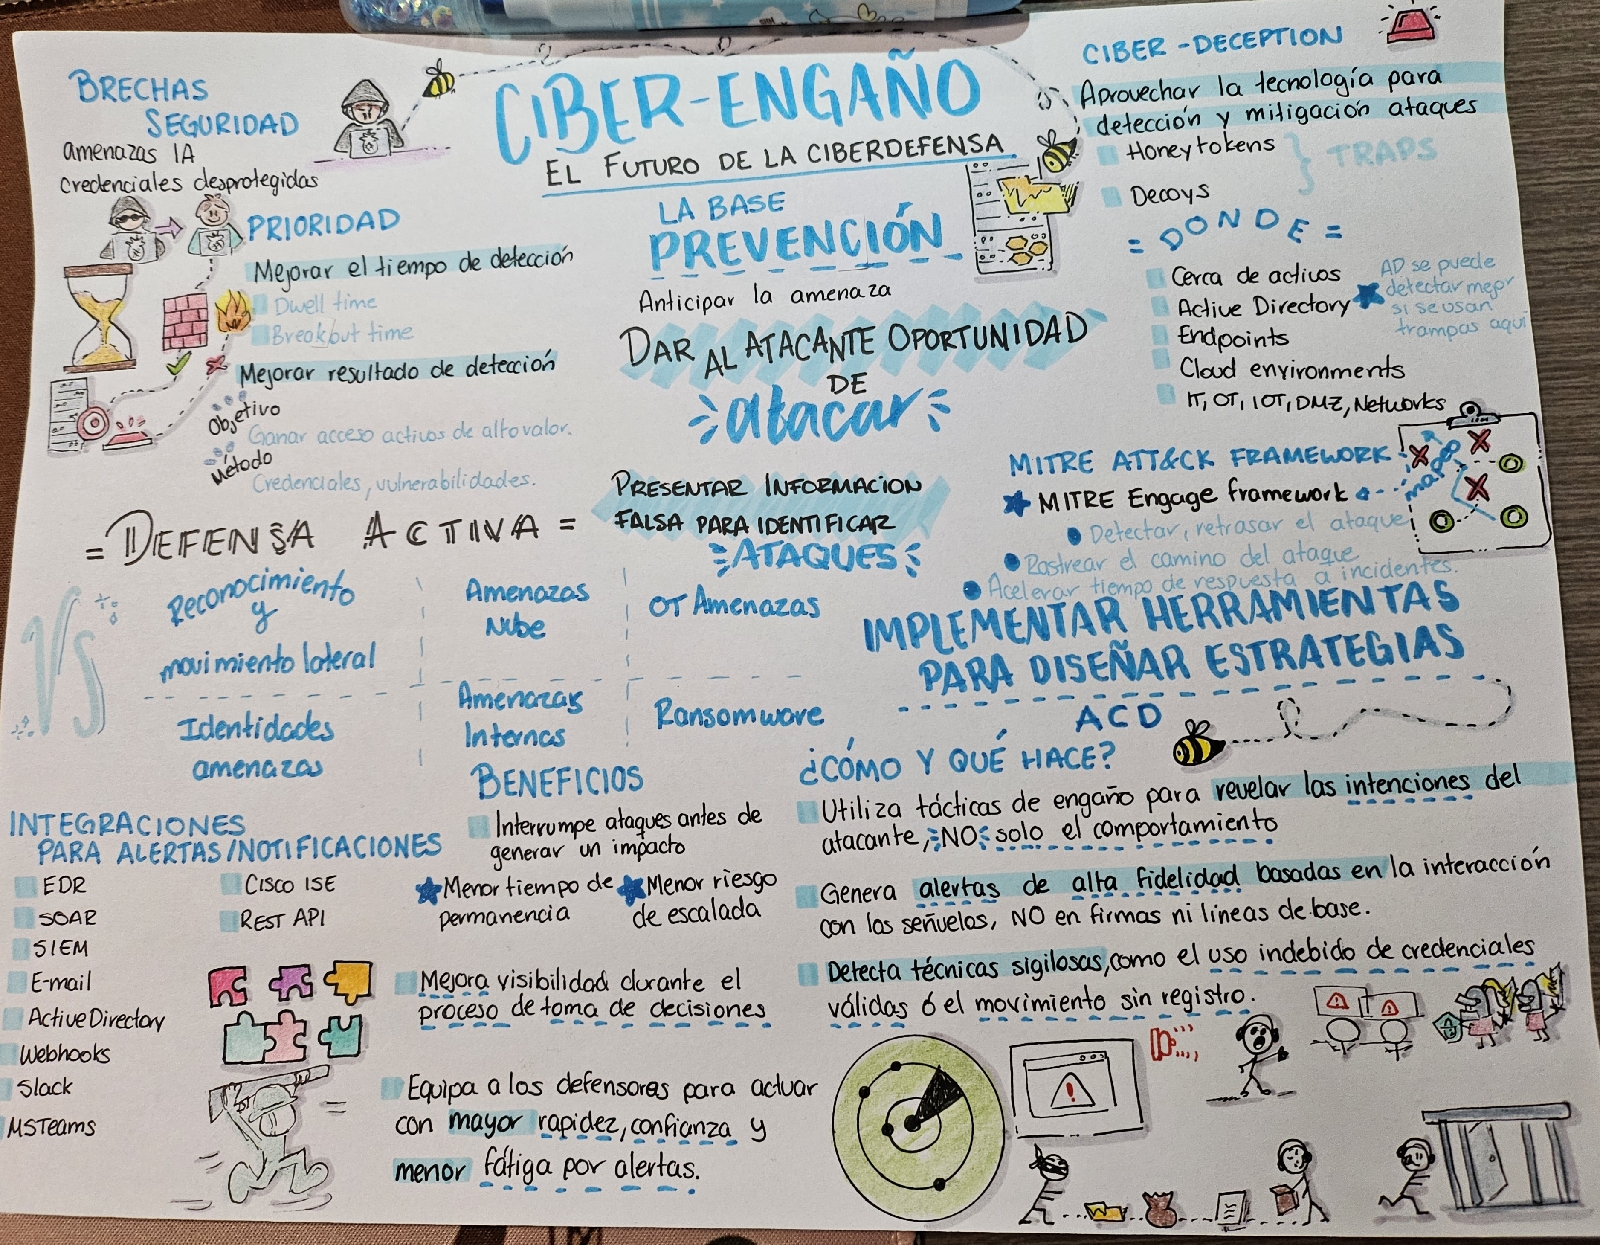 CIBER-ENGAÑO
EL FUTURO DE LA CIBERDEFENSA
BRECHAS
SEGURIDAD
amenazas IA
credenciales desprotegidas
PRIORIDAD
Mejorar el tiempo de detección
Dwell time
Breakout time
Mejorar resultado de detección
Objetivo
Ganar acceso activos de alto valor.
Método
Credenciales, vulnerabilidades.
LA BASE
PREVENCIÓN
Anticipar la amenaza
DAR AL ATACANTE OPORTUNIDAD
DE
atacar
PRESENTAR INFORMACION
FALSA PARA IDENTIFICAR
ATAQUES
CIBER-DECEPTION
Aprovechar la tecnología para
detección y mitigación ataques
Honeytokens
Decoys
TRAPS
= DONDE =
Cerca de activos
Active Directory
Endpoints
Cloud environments
IT, OT, IOT, DMZ, Networks
AD se puede
detectar mejor
si se usan
trampas aquí
MITRE ATT&CK FRAMEWORK
MITRE Engage framework
mapeo
Detectar, retrasar el ataque
Rastrear el camino del ataque
Acelerar tiempo de respuesta a incidentes.
= DEFENSA ACTIVA =
VS
Reconocimiento
y
movimiento lateral
Amenazas
Nube
OT Amenazas
Identidades
amenazas
Amenazas
Internas
Ransomware
IMPLEMENTAR HERRAMIENTAS
PARA DISEÑAR ESTRATEGIAS
ACD
¿CÓMO Y QUÉ HACE?
Utiliza tácticas de engaño para revelar las intenciones del
atacante, NO solo el comportamiento
Genera alertas de alta fidelidad basadas en la interacción
con los señuelos, NO en firmas ni líneas de base.
Detecta técnicas sigilosas, como el uso indebido de credenciales
válidas ó el movimiento sin registro.
BENEFICIOS
Interrumpe ataques antes de
generar un impacto
Menor tiempo de
permanencia
Menor riesgo
de escalada
Mejora visibilidad durante el
proceso de toma de decisiones
Equipa a los defensores para actuar
con mayor rapidez, confianza y
menor fátiga por alertas.
INTEGRACIONES
PARA ALERTAS/NOTIFICACIONES
EDR
SOAR
SIEM
E-mail
Active Directory
Webhooks
Slack
MSTeams
CISCO ISE
REST API